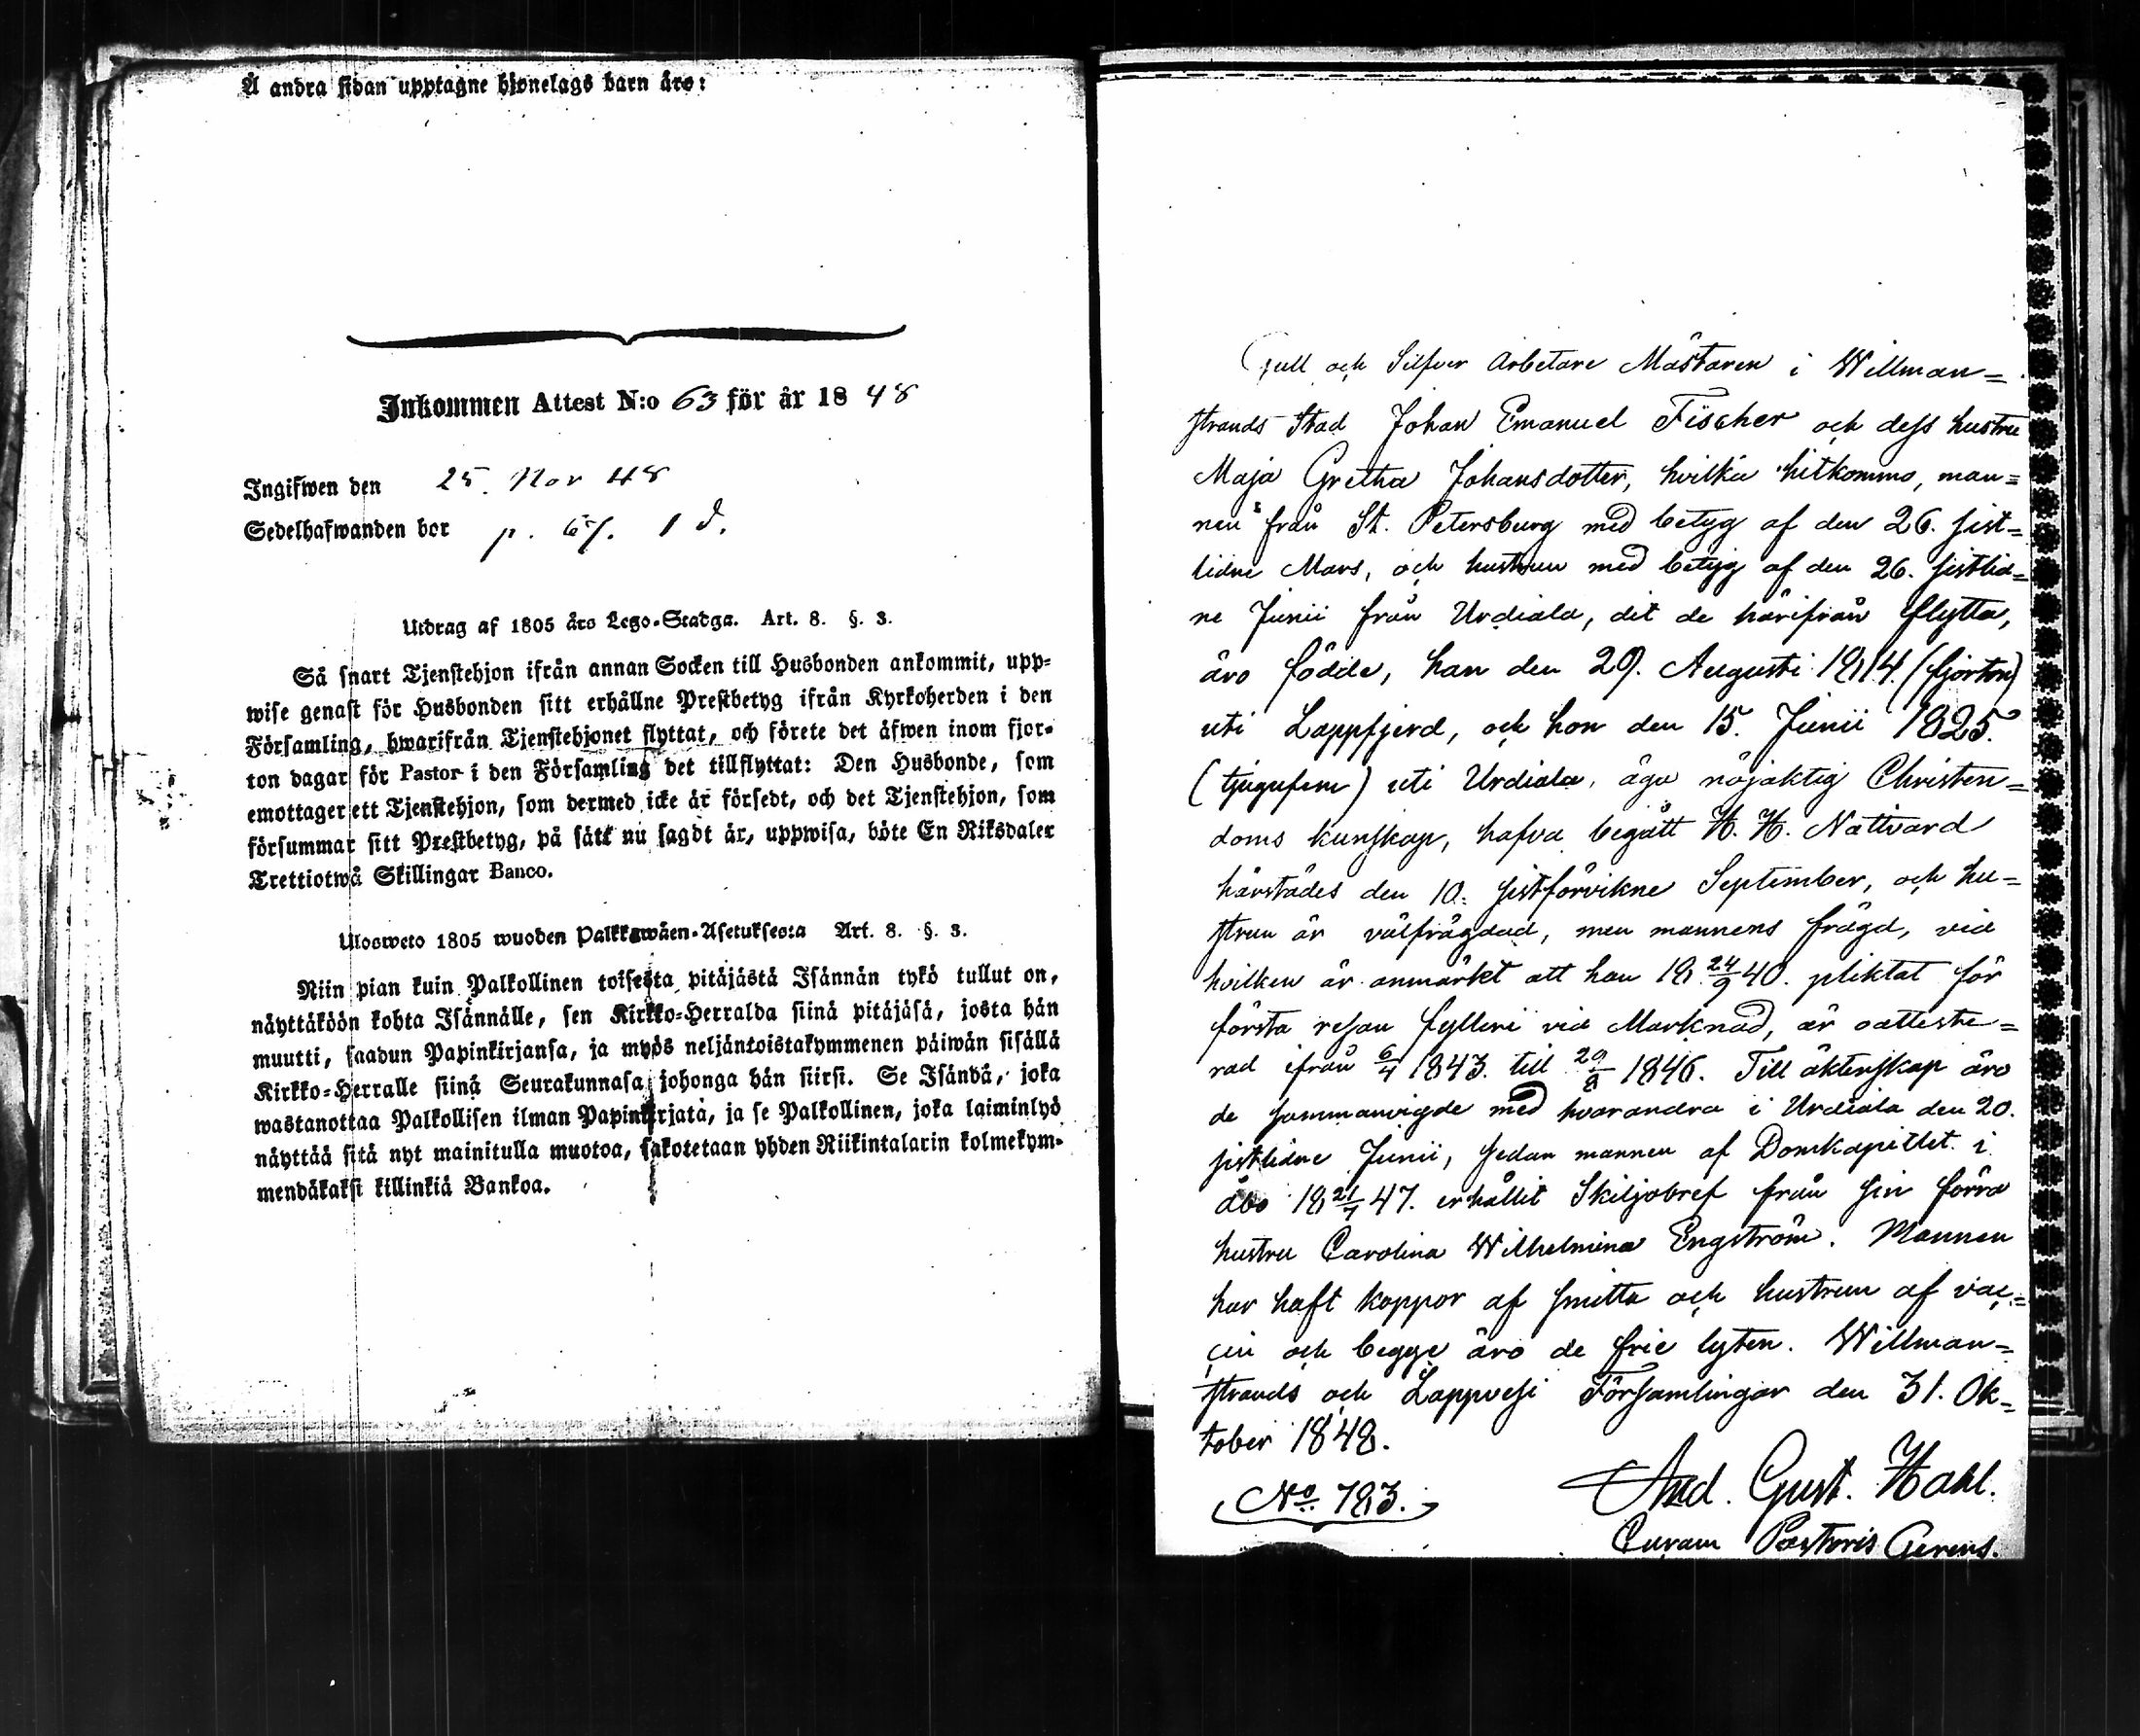 Å andra sidan upptagne hjonelags barn äro:
Inkommen Attest N:o 63 för år 1848
Ingifwen den 25. Nov 48
Sedelhafwanden bor p. 1 d.
Utdrag af 1805 års Lego-Stadga. Art. 8. §. 3.
Så snart Tjenstehjon ifrån annan Socken till Husbonden ankommit, upp-
wise genast för Husbonden sitt erhållne Prestbetyg ifrån Kyrkoherden i den
Församling, hwarifrån Tjenstehjonet flyttat, och förete det äfwen inom fjor-
ton dagar för Pastor i den Församling det tillflyttat: Den Husbonde, som
emottager ett Tjenstehjon, som dermed icke är försedt, och det Tjenstehjon, som
försummar sitt Prestbetyg, på sätt nu sagdt är, uppwisa, böte En Riksdaler
Trettiotwå Skillingar Banco.
Ulosweto 1805 wuoden Palkkawäen-Asetuksesta Art. 8. §. 3.
Niin pian kuin Palkollinen toisesta pitäjästä Isännän tykö tullut on,
näyttäköön kohta Isännälle, sen Kirkko-Herralda siinä pitäjäsä, josta hän
muutti, saadun Papinkirjansa, ja myös neljäntoistakymmenen päiwän sisällä
Kirkko-Herralle siinä Seurakunnasa johonga hän siirsi. Se Isändä, joka
wastanottaa Palkollisen ilman Papinkirjatà, ja se Palkollinen, joka laiminlyö
näyttää sitä nyt mainitulla muotoa, sakotetaan yhden Riikintalarin kolmekym-
mendäkaksi killinkiä Bankoa.
Gull och Silfver Arbetare Mästaren i Willman=
strands Stad Johan Emanuel Fischer och dess hustru
Maja Gretha Johansdotter, hvilka hitkommo, man=
nen från St. Petersburg med betyg af den 26. sist=
lidne Mars, och hustrun med betyg af den 26. sistlid=
ne Junii från Urdiala, dit de härifrån flytta,
äro födde, han den 29. Augusti 1814. (fjorton)
uti Lappfjerd, och hon den 15. Junii 1825.
(tjugufem) uti Urdiala, äga nöjaktig Christen=
doms kunskap, hafva begått H. H. Nattvard
härstädes den 10. sistförvikne September, och hu=
strun är välfrägdad, men mannens frägd, vid
hvilken är anmärkt att han 18 24/9 40. pliktat för
första resan fylleri vid Marknad, är oatteste=
rad ifrån 6/4 1843. till 29/8 1846. Till äktenskap äro
de sammanvigde med hvarandra i Urdiala den 20.
sistlidne Junii, sedan mannen af Domkapitlet i
Åbo 18 21/7 47. erhållit Skiljobref från sin förra
hustru Carolina Wilhelmina Engström. Mannen
har haft koppor af smitta och hustrun af vac=
cin och begge äro de frie lyten. Willman=
strands och Lappvesi Församlingar den 31. Ok=
tober 1848.
No 783.
And. Gust. Hahl.
Curam Pastoris Gerens.